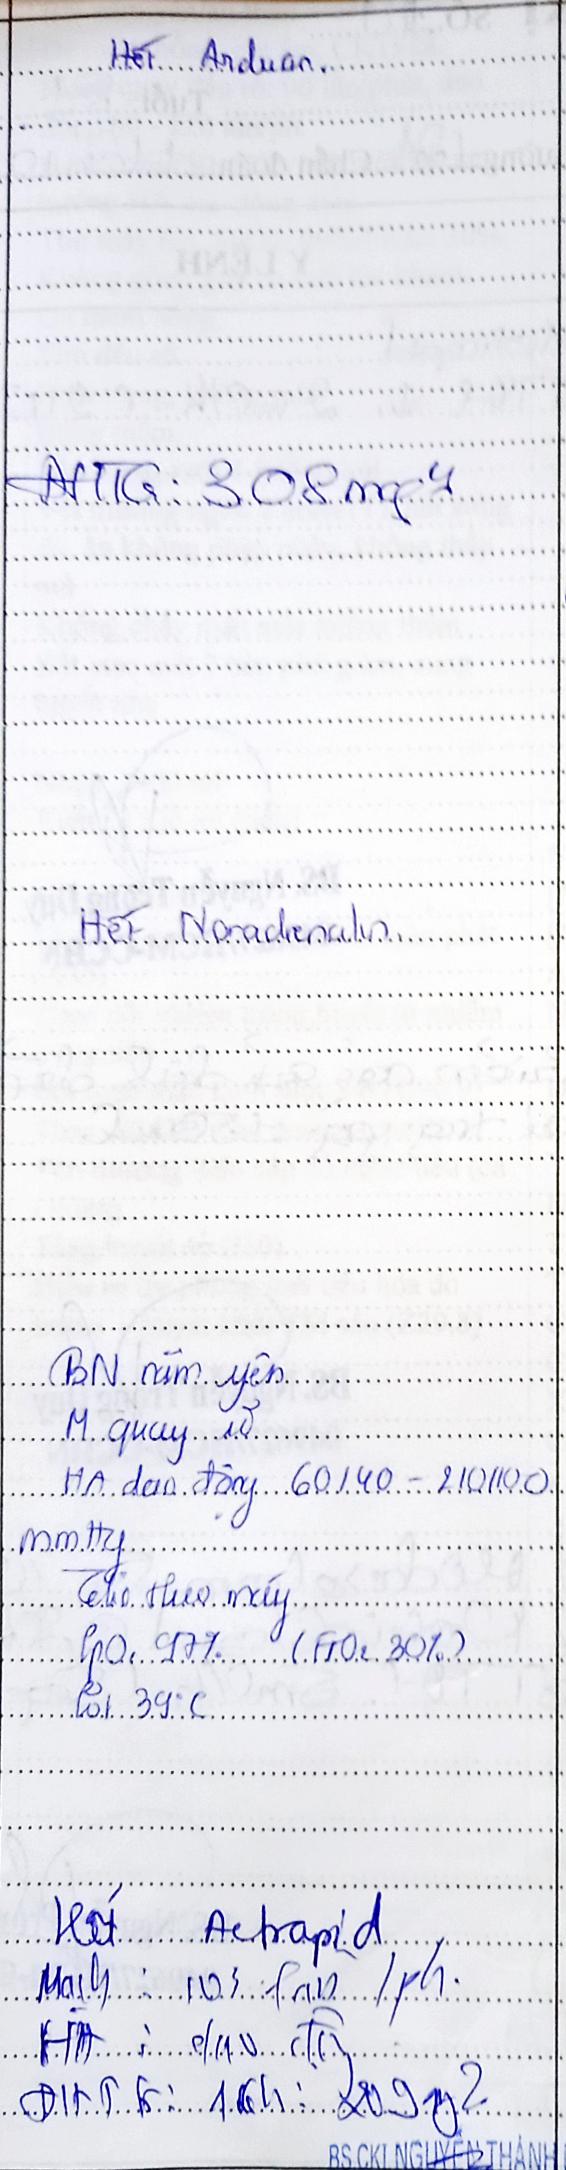 Hết Arduan.
ĐHTG: 308 mg%
Hết Noradrenalin.
BN nằm yên
M quay rõ
HA dao động 60/40 - 210/100
mmHg
Thở theo máy
SpO2 97% (FiO2 30%)
Sốt 39°C
Hết Actrapid
Mạch: 103 lần /ph.
HA: dao động
ĐHTG: 16h: 209
BS.CKI.NGUYỄN THÀNH